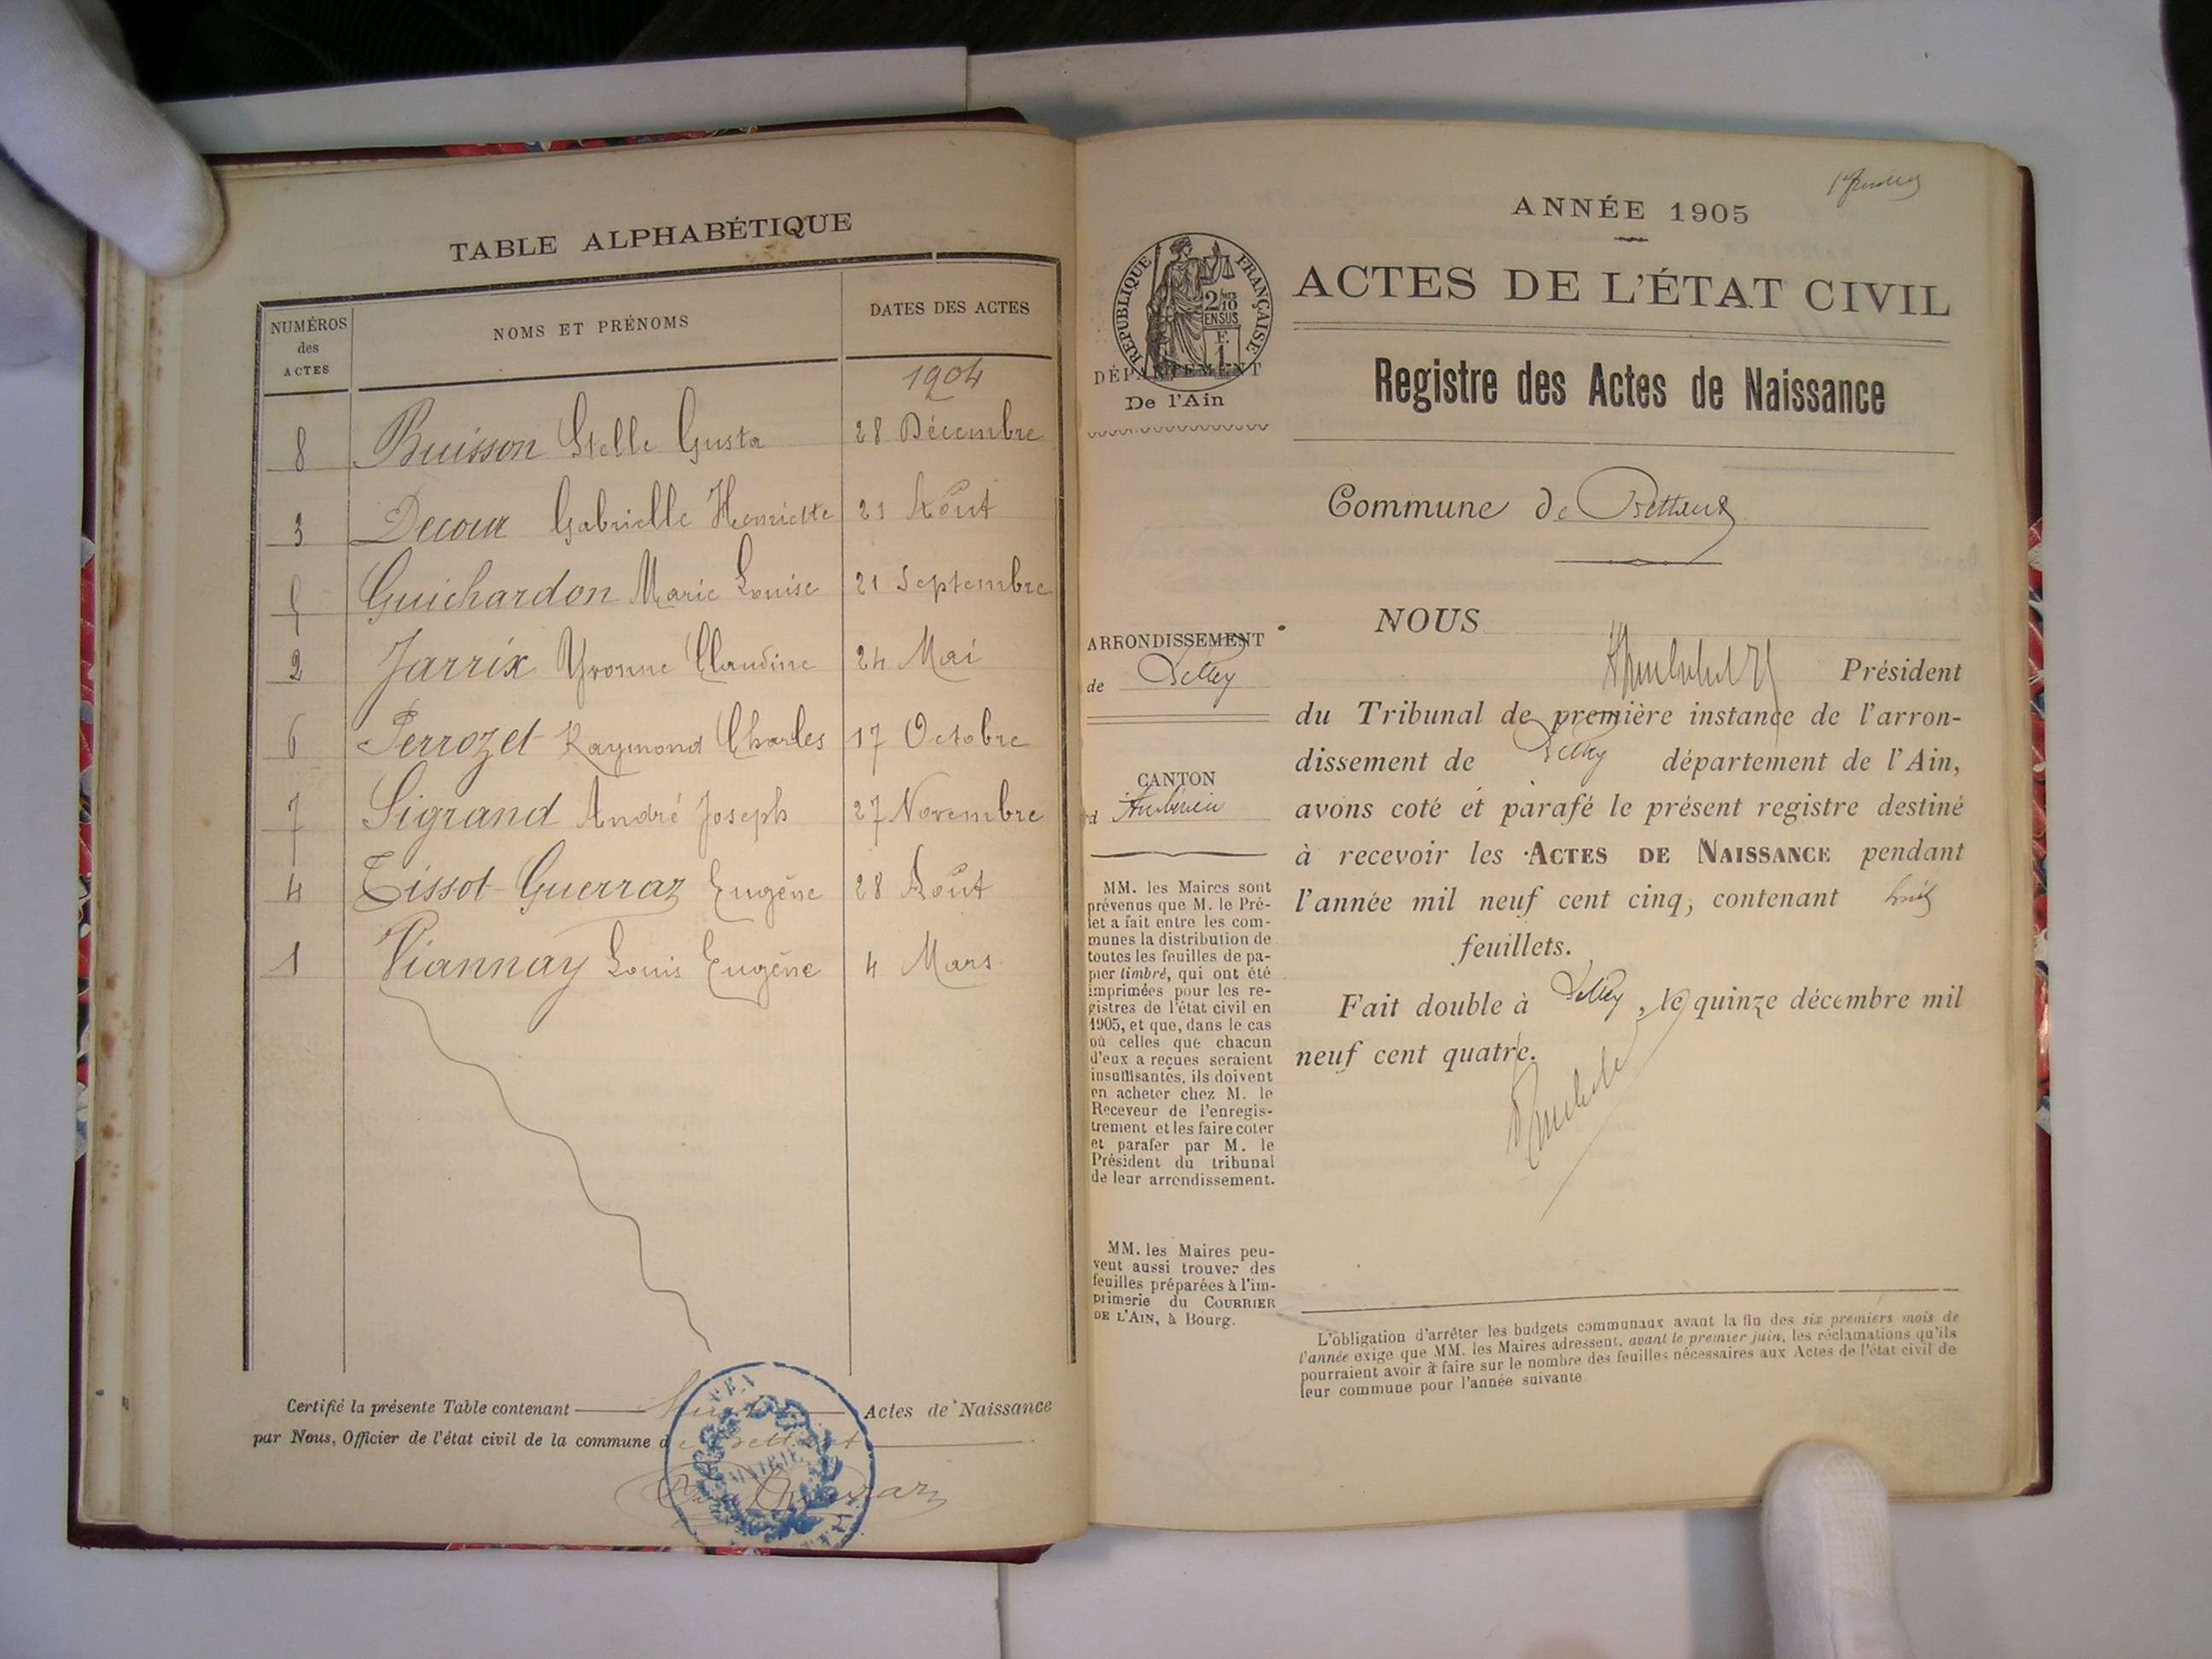 TABLE ALPHABÉTIQUE
NUMÉROS des ACTES
NOMS ET PRÉNOMS
DATES DES ACTES
1904
8 Buisson Stelle Gusta 28 Décembre
3 Decour Gabrielle Henriette 21 Août
5 Guichardon Marie Louise 21 Septembre
2 Jarrix Yvonne Claudine 24 Mai
6 Perrozet Raymond Charles 17 Octobre
7 Sigrand André Joseph 27 Novembre
4 Tissot-Guerraz Eugène 28 Août
1 Viannay Louis Eugène 4 Mars
Certifié la présente Table contenant Actes de Naissance
par Nous, Officier de l'état civil de la commune de Bettant
MAIRIE
ANNÉE 1905
RÉPUBLIQUE FRANÇAISE
2/10 EN SUS
F.
1
DÉPARTEMENT
De l'Ain
ACTES DE L'ÉTAT CIVIL
Registre des Actes de Naissance
Commune de Bettant
ARRONDISSEMENT
de Belley
CANTON
d'Ambérieu
MM. les Maires sont
prévenus que M. le Pré-
fet a fait entre les com-
munes la distribution de
toutes les feuilles de pa-
pier timbré, qui ont été
imprimées pour les re-
gistres de l'état civil en
1905, et que, dans le cas
où celles que chacun
d'eux a reçues seraient
insuffisantes, ils doivent
en acheter chez M. le
Receveur de l'enregis-
trement et les faire coter
et parafer par M. le
Président du tribunal
de leur arrondissement.
MM. les Maires peu-
vent aussi trouver des
feuilles préparées à l'im-
primerie du COURRIER
DE L'AIN, à Bourg.
NOUS
Président
du Tribunal de première instance de l'arron-
dissement de Belley département de l'Ain,
avons coté et parafé le présent registre destiné
à recevoir les ACTES DE NAISSANCE pendant
l'année mil neuf cent cinq, contenant huit
feuillets.
Fait double à Belley, le quinze décembre mil
neuf cent quatre.
L'obligation d'arrêter les budgets communaux avant la fin des six premiers mois de
l'année exige que MM. les Maires adressent, avant le premier juin, les réclamations qu'ils
pourraient avoir à faire sur le nombre des feuilles nécessaires aux Actes de l'état civil de
leur commune pour l'année suivante